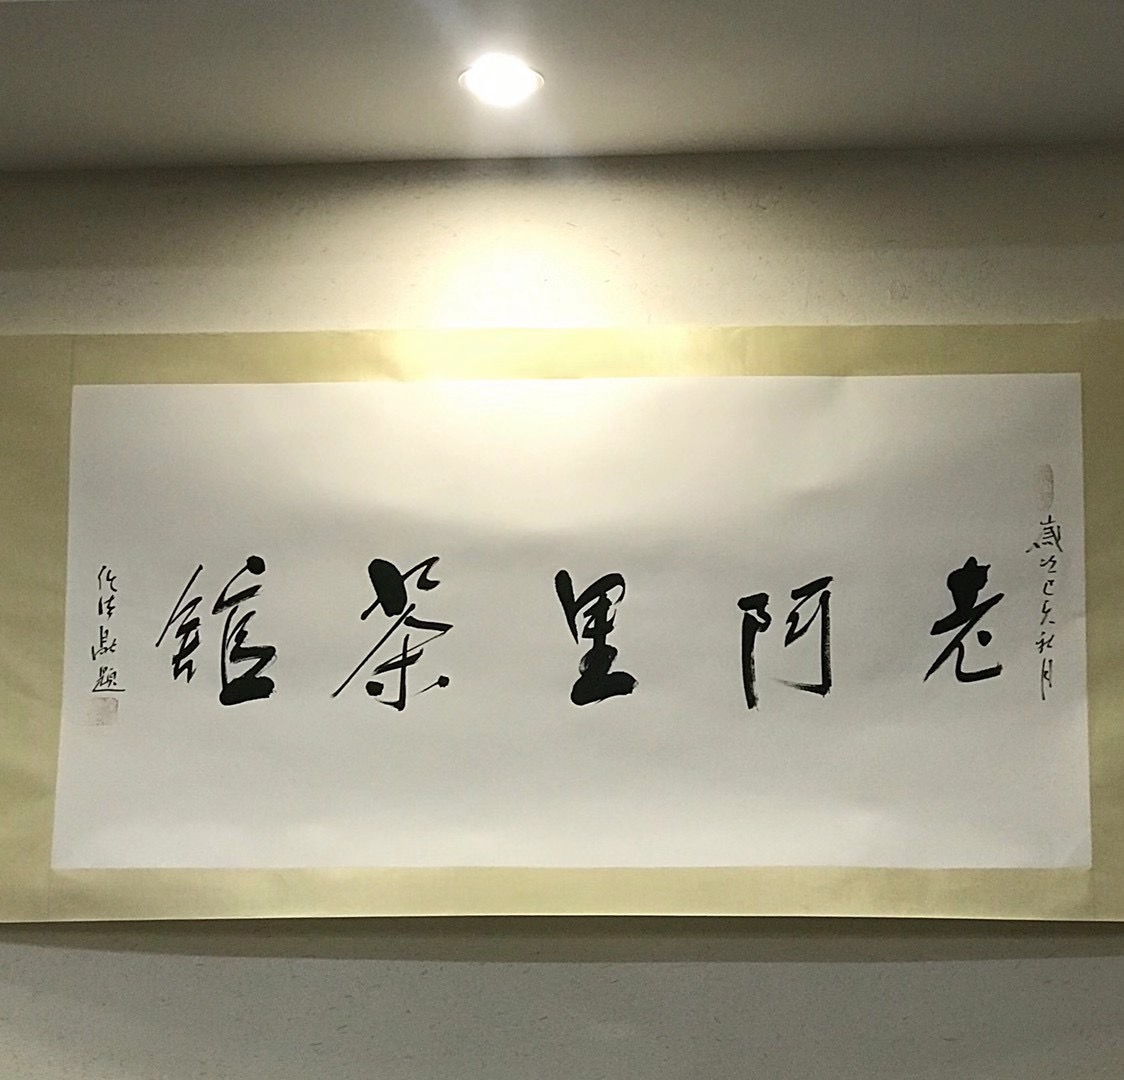 歲次己亥秋月
老阿里茶館
題